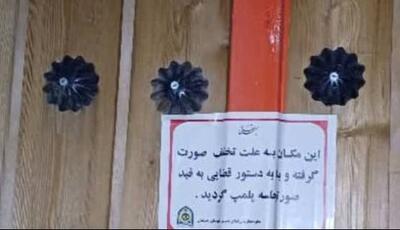 این مکان به علت تخلف صورت
گرفته و با به دستور قضایی به قید
صورتجلسه پلمپ گردید .